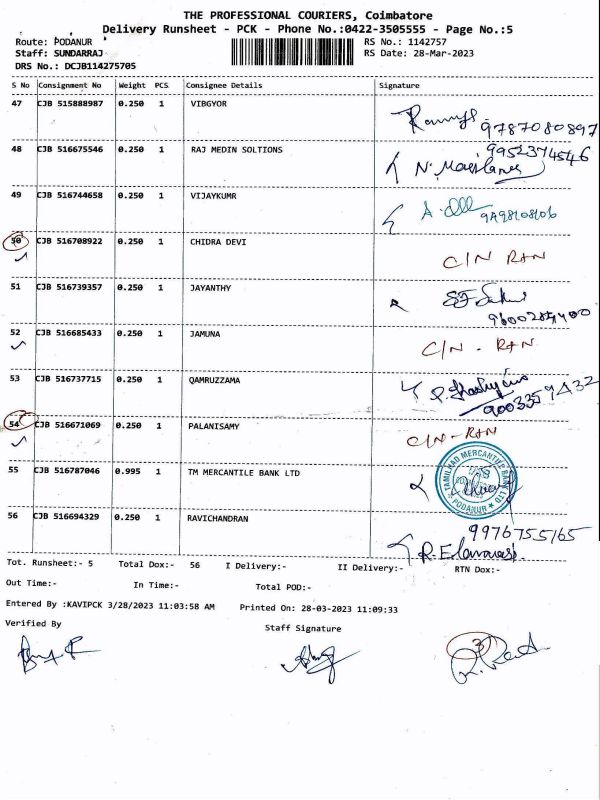 THE PROFESSIONAL COURIERS, Coimbatore
Delivery Runsheet - PCK - Phone No.:0422-3505555 - Page No.:5
Route: PODANUR RS No.: 1142757
Staff: SUNDARRAJ RS Date: 28-Mar-2023
DRS No.: DCJB114275705
S No Consignment No Weight PCS Consignee Details Signature
47 CJB 515888987 0.250 1 VIBGYOR
9787080897
48 CJB 516675546 0.250 1 RAJ MEDIN SOLTIONS 9952374546
49 CJB 516744658 0.250 1 VIJAYKUMR
50 CJB 516708922 0.250 1 CHIDRA DEVI
C/N RTN
51 CJB 516739357 0.250 1 JAYANTHY
52 CJB 516685433 0.250 1 JAMUNA
C/N - RTN
53 CJB 516737715 0.250 1 QAMRUZZAMA
54 CJB 516671069 0.250 1 PALANISAMY
C/N - RTN
55 CJB 516787046 0.995 1 TM MERCANTILE BANK LTD
TAMILNAD MERCANTILE BANK LTD
PODANUR
56 CJB 516694329 0.250 1 RAVICHANDRAN
9976755165
Tot. Runsheet:- 5 Total Dox:- 56 I Delivery:- II Delivery:- RTN Dox:-
Out Time:- In Time:- Total POD:-
Entered By :KAVIPCK 3/28/2023 11:03:58 AM Printed On: 28-03-2023 11:09:33
Verified By Staff Signature